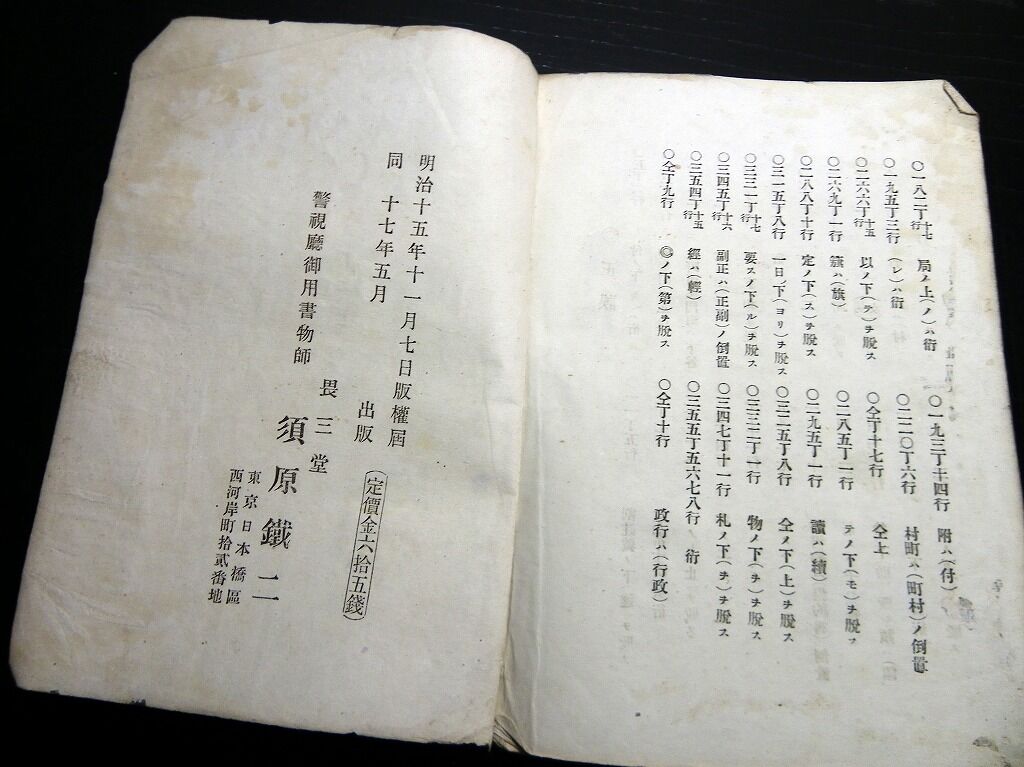 〇一八二丁十七行 局ノ上(ノ)ハ衍 〇一九三丁十四行 附ハ(付)
〇一九五丁三行 (レ)ハ衍 〇二二〇丁六行 村町ハ(町村)ノ倒置
〇二六六丁十五行 以ノ下(テ)ヲ脱ス 〇仝丁十七行 仝上
〇二六九丁一行 籏ハ(旗) 〇二八五丁一行 テノ下(モ)ヲ脱ス
〇二八八丁十行 定ノ下(ス)ヲ脱ス 〇二九五丁一行 讀ハ(續)
〇三一五丁八行 一日ノ下(ヨリ)ヲ脱ス 〇三二五丁八行 仝ノ下(上)ヲ脱ス
〇三三一丁十七行 要スノ下(ル)ヲ脱ス 〇三三二丁一行 物ノ下(ヲ)ヲ脱ス
〇三四五丁十六行 副正ハ(正副)ノ倒置 〇三四七丁十一行 札ノ下(ヲ)ヲ脱ス
〇三五四丁十五行 經ハ(輕) 〇三五五丁五六七八行 衍
〇仝丁九行 ◎ノ下(第)ヲ脱ス 〇仝丁十行 政行ハ(行政)
明治十五年十一月七日版權屆
同 十七年五月 出版
定價金六拾五錢
警視廳御用書物師
畏三堂
須原鐵二
東京日本橋區
西河岸町拾貳番地